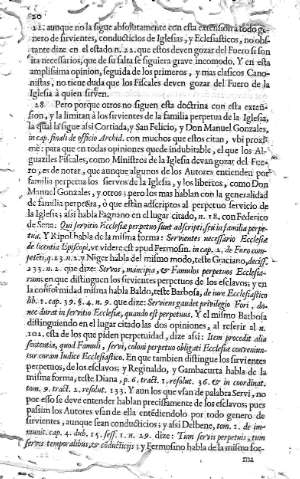 20
22. aunque no la sigue absolutamente con esta extension a todo ge-
nero de sirvientes, conducticios de Iglesias, y Eclesiasticos, no obs-
tante dize en el estado n. 22. que estos deven gozar del Fuero si son
necessarios, que de su falta se siguiera grave incomodo. Y en esta
amplissima opinion, seguida de los primeros, y mas clasicos Cano-
nistas, no tiene duda que los Fiscales deven gozar del Fuero de la
Iglesia à quien sirven.
28 Pero porque otros no siguen esta doctrina con esta exten-
sion, y la limitan à los sirvientes de la familia perpetua de la Iglesia,
la qual sigue assi Cortiada, y San Felicio, y Don Manuel Gonzales,
in cap. finali de officio Archid. con muchos que estos citan, y ubi proxi-
mè: para que en todas opiniones quede indubitable, el que los Al-
guaziles Fiscales, como Ministros de la Iglesia devan gozar del Fue-
ro, es de notar, que aunque algunos de los Autores entienden por
familia perpetua los siervos de la Iglesia, y los libertos, como Don
Manuel Gonzales, y otros; pero los mas hablan con la generalidad
de familia perpetua, ò que estàn adscriptos al perpetuo servicio de
la Iglesia; assi habla Fagnano en el lugar citado, n. 18. con Federico
de Senis: Qui servitio Ecclesiæ perpetuò sunt adscripti, seu in familia perpe-
tua. Y Ripol habla de la misma forma: Servientes necessarios Ecclesiæ
de licentia Episcopi, ut videre est apud Fermosin. in cap. 2. de Foro com-
peten. q. 13. n. 2. Y Niger habla del mismo modo, teste Graciano, decis.
233. n. 2. que dize: Servos, mancipia, & Famulos perpetuos Ecclesia-
rum en que distinguen los sirvientes perpetuos de los esclavos; y en
la conformidad misma habla Baldo, teste Barbosa, de iure Ecclesiastico
lib. 1. cap. 39. §. 4. n. 9. que dize: Serviens gaudet privilegio Fori, do-
nec durat in servitio Ecclesiæ, quando est perpetuus. Y el mismo Barbosa
distinguiendo en el lugar citado las dos opiniones, al referir al n.
102. esta de los que piden perpetuidad, dize assi: Item procedit alia
sententia, quod Famuli, servi, coloni perpetuò obligati Ecclesiæ conveniun-
tur coram Iudice Ecclesiastico. En que tambien distingue los sirvientes
perpetuos, de los esclavos; y Reginaldo, y Gambacurta habla de la
misma forma, teste Diana, p. 6. tract. 1. resolut. 36. & in coordinat.
tom. 9. tract. 2. resolut. 133. Y aun los que usan de palabra Servi, no
por esso se deve entender hablan precisamente de los esclavos; pues
passim los Autores usan de ella entendiendolo por todo genero de
sirvientes, aunque sean conducticios; y assi Delbene, tom. 2. de im-
munit. cap. 4. dub. 15. sess. 1. n. 29. dize: Tam servis perpetuis, tum
servis temporalibus, & conductitijs; y Fermosino habla de la misma for-
ma